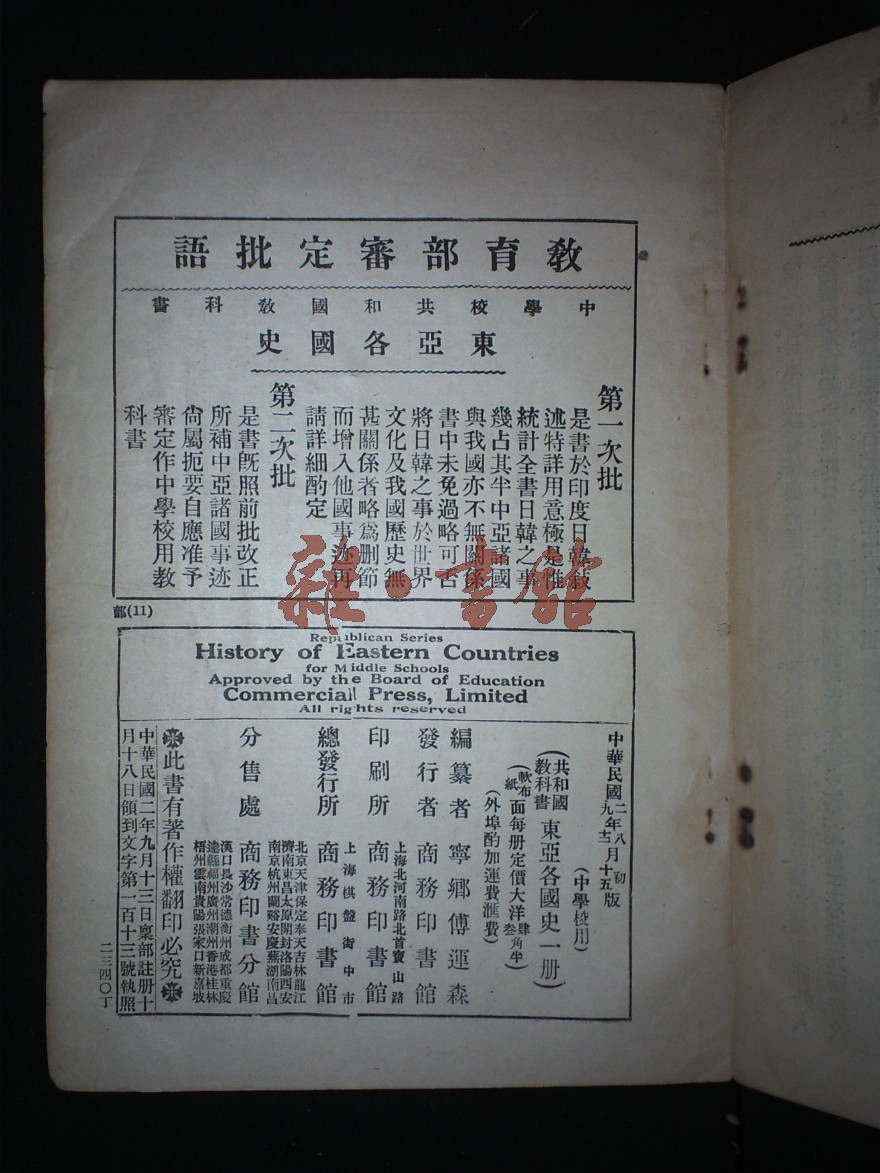 教育部審定批語
中學校共和國教科書
東亞各國史
第一次批
是書於印度日韓敍
述特詳用意極是惟
統計全書日韓之事
幾占其半中亞諸國
與我國亦不無關係
書中未免過略可否
將日韓之事於世界
文化及我國歷史無
甚關係者略爲删節
而增入他國事迹再
請詳細酌定
第二次批
是書旣照前批改正
所補中亞諸國事迹
尙屬扼要自應准予
審定作中學校用教
科書
部(11)
雜·書館
Republican Series
History of Eastern Countries
for Middle Schools
Approved by the Board of Education
Commercial Press, Limited
All rights reserved
中華民國二年八月初版
九年十二月十五版
(中學校用)
(共和國教科書 東亞各國史一册)
(軟布面每册定價大洋肆角)
(紙面每册定價大洋叁角半)
(外埠酌加運費滙費)
編纂者 寧鄉傅運森
發行者 商務印書館
上海北河南路北首寶山路
印刷所 商務印書館
上海棋盤街中市
總發行所 商務印書館
北京天津保定奉天吉林龍江
濟南東昌太原開封洛陽西安
南京杭州蘭谿安慶蕪湖南昌
分售處 商務印書分館
漢口長沙常德衡州成都重慶
達縣福州廣州潮州香港桂林
梧州雲南貴陽張家口新嘉坡
此書有著作權翻印必究
中華民國二年九月十三日稟部註册十
月十八日領到文字第一百十三號執照
二三四〇丁